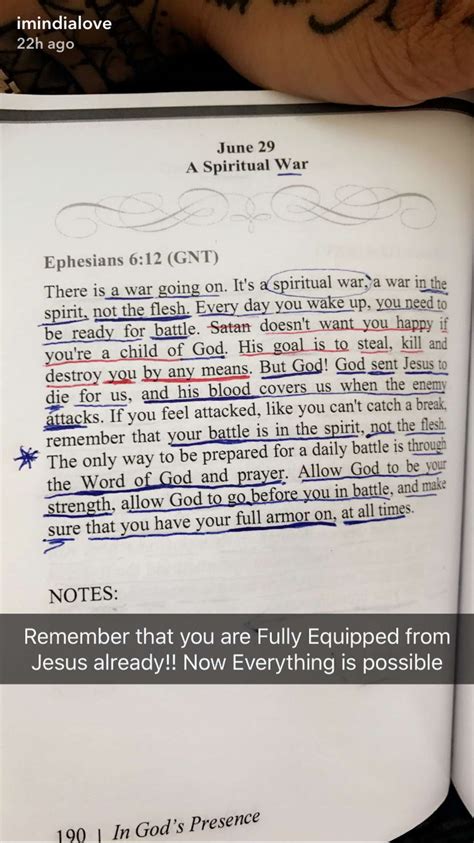 imindialove
22h ago
June 29
A Spiritual War
Ephesians 6:12 (GNT)
There is a war going on. It's a spiritual war, a war in the
spirit, not the flesh. Every day you wake up, you need to
be ready for battle. Satan doesn't want you happy if
you're a child of God. His goal is to steal, kill and
destroy you by any means. But God! God sent Jesus to
die for us, and his blood covers us when the enemy
attacks. If you feel attacked, like you can't catch a break,
remember that your battle is in the spirit, not the flesh.
The only way to be prepared for a daily battle is through
the Word of God and prayer. Allow God to be your
strength, allow God to go before you in battle, and make
sure that you have your full armor on, at all times.
NOTES:
Remember that you are Fully Equipped from
Jesus already!! Now Everything is possible
190 | In God's Presence